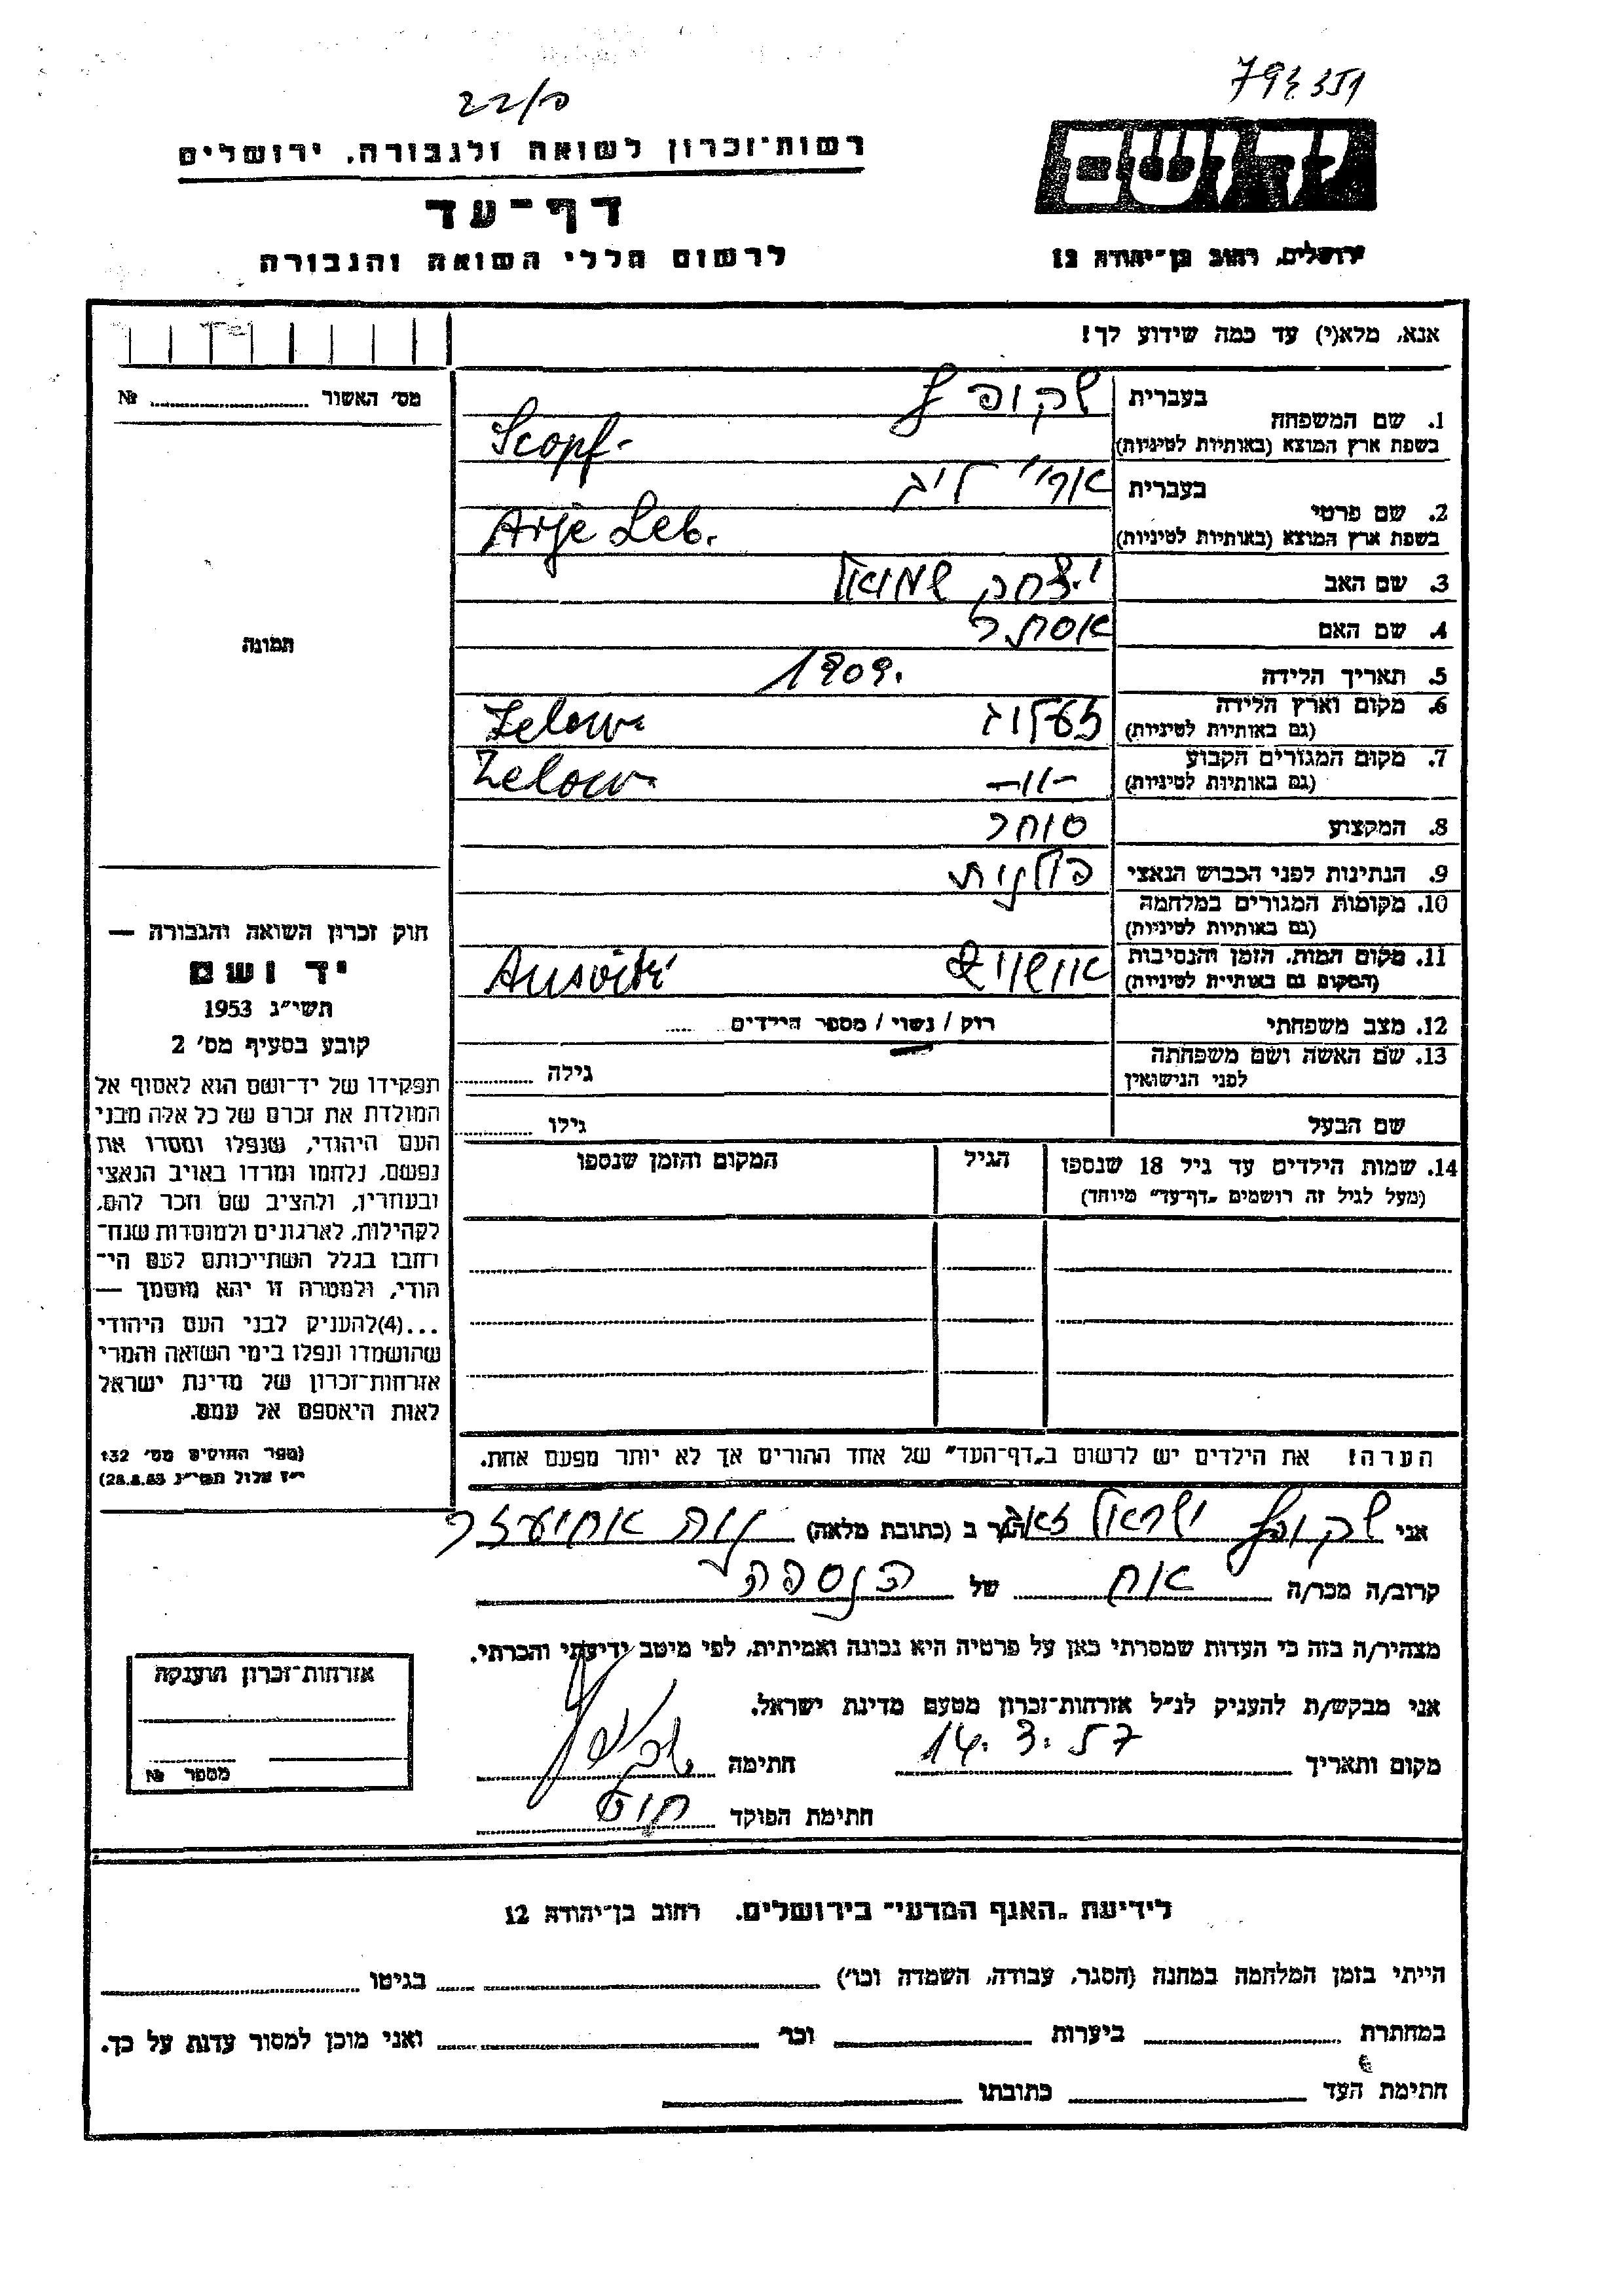 22/פ
רשות־זכרון לשואה ולגבורה, ירושלים
דף־עד
לרשום חללי השואה והגבורה
יד ושם
ירושלים, רחוב בן־יהודה 12
אנא, מלא(י) עד כמה שידוע לך!
מס׳ האשור № 
1. שם המשפחה בעברית שקופף
בשפת ארץ המוצא (באותיות לטיניות) Scopf-
2. שם פרטי בעברית ארי׳ ליב
בשפת ארץ המוצא (באותיות לטיניות) Arje Leb.
3. שם האב יצחק שמואל
4. שם האם אסתר
5. תאריך הלידה 1909.
6. מקום וארץ הלידה (גם באותיות לטיניות) זעלוב Zelow
7. מקום המגורים הקבוע (גם באותיות לטיניות) -"- Zelow
8. המקצוע סוחר
9. הנתינות לפני הכבוש הנאצי פולנית
10. מקומות המגורים במלחמה (גם באותיות לטיניות)
11. מקום המות, הזמן והנסיבות (המקום גם באותיות לטיניות) אושויץ Ausvitz
12. מצב משפחתי רוק / נשוי / מספר הילדים
13. שם האשה ושם משפחתה לפני הנישואין גילה
שם הבעל גילו
14. שמות הילדים עד גיל 18 שנספו הגיל המקום והזמן שנספו
(מעל לגיל זה רושמים „דף־עד" מיוחד)
הערה! את הילדים יש לרשום ב„דף־העד" של אחד ההורים אך לא יותר מפעם אחת.
תמונה
חוק זכרון השואה והגבורה —
יד ושם
תשי״ג 1953
קובע בסעיף מס׳ 2
תפקידו של יד־ושם הוא לאסוף אל
המולדת את זכרם של כל אלה מבני
העם היהודי, שנפלו ומסרו את
נפשם, נלחמו ומרדו באויב הנאצי
ובעוזריו, ולהציב שם וזכר להם,
לקהילות, לארגונים ולמוסדות שנח־
רחבו בגלל השתייכותם לעם הי־
הודי, ולמטרה זו יהא מוסמך —
...(4)להעניק לבני העם היהודי
שהושמדו ונפלו בימי השואה והמרי
אזרחות־זכרון של מדינת ישראל
לאות היאספם אל עמם.
(ספר החוקים מס׳ 132
י״ז אלול תשי״ג 28.8.53)
אני שקופף ישראל זאב הגר ב (כתובת מלאה) נוה אחיעזר
קרוב/ה מכר/ה אח של הנספה
מצהיר/ה בזה כי העדות שמסרתי כאן על פרטיה היא נכונה ואמיתית, לפי מיטב ידיעתי והכרתי.
אני מבקש/ת להעניק לנ״ל אזרחות־זכרון מטעם מדינת ישראל.
מקום ותאריך 14.3.57 חתימה
חתימת הפוקד
אזרחות־זכרון הוענקה
מספר №
לידיעת „האגף המדעי" בירושלים, רחוב בן־יהודה 12
הייתי בזמן המלחמה במחנה (הסגר, עבודה, השמדה וכו׳) בגיטו
במחתרת ביערות וכו׳ ואני מוכן למסור עדות על כך.
חתימת העד כתובתו